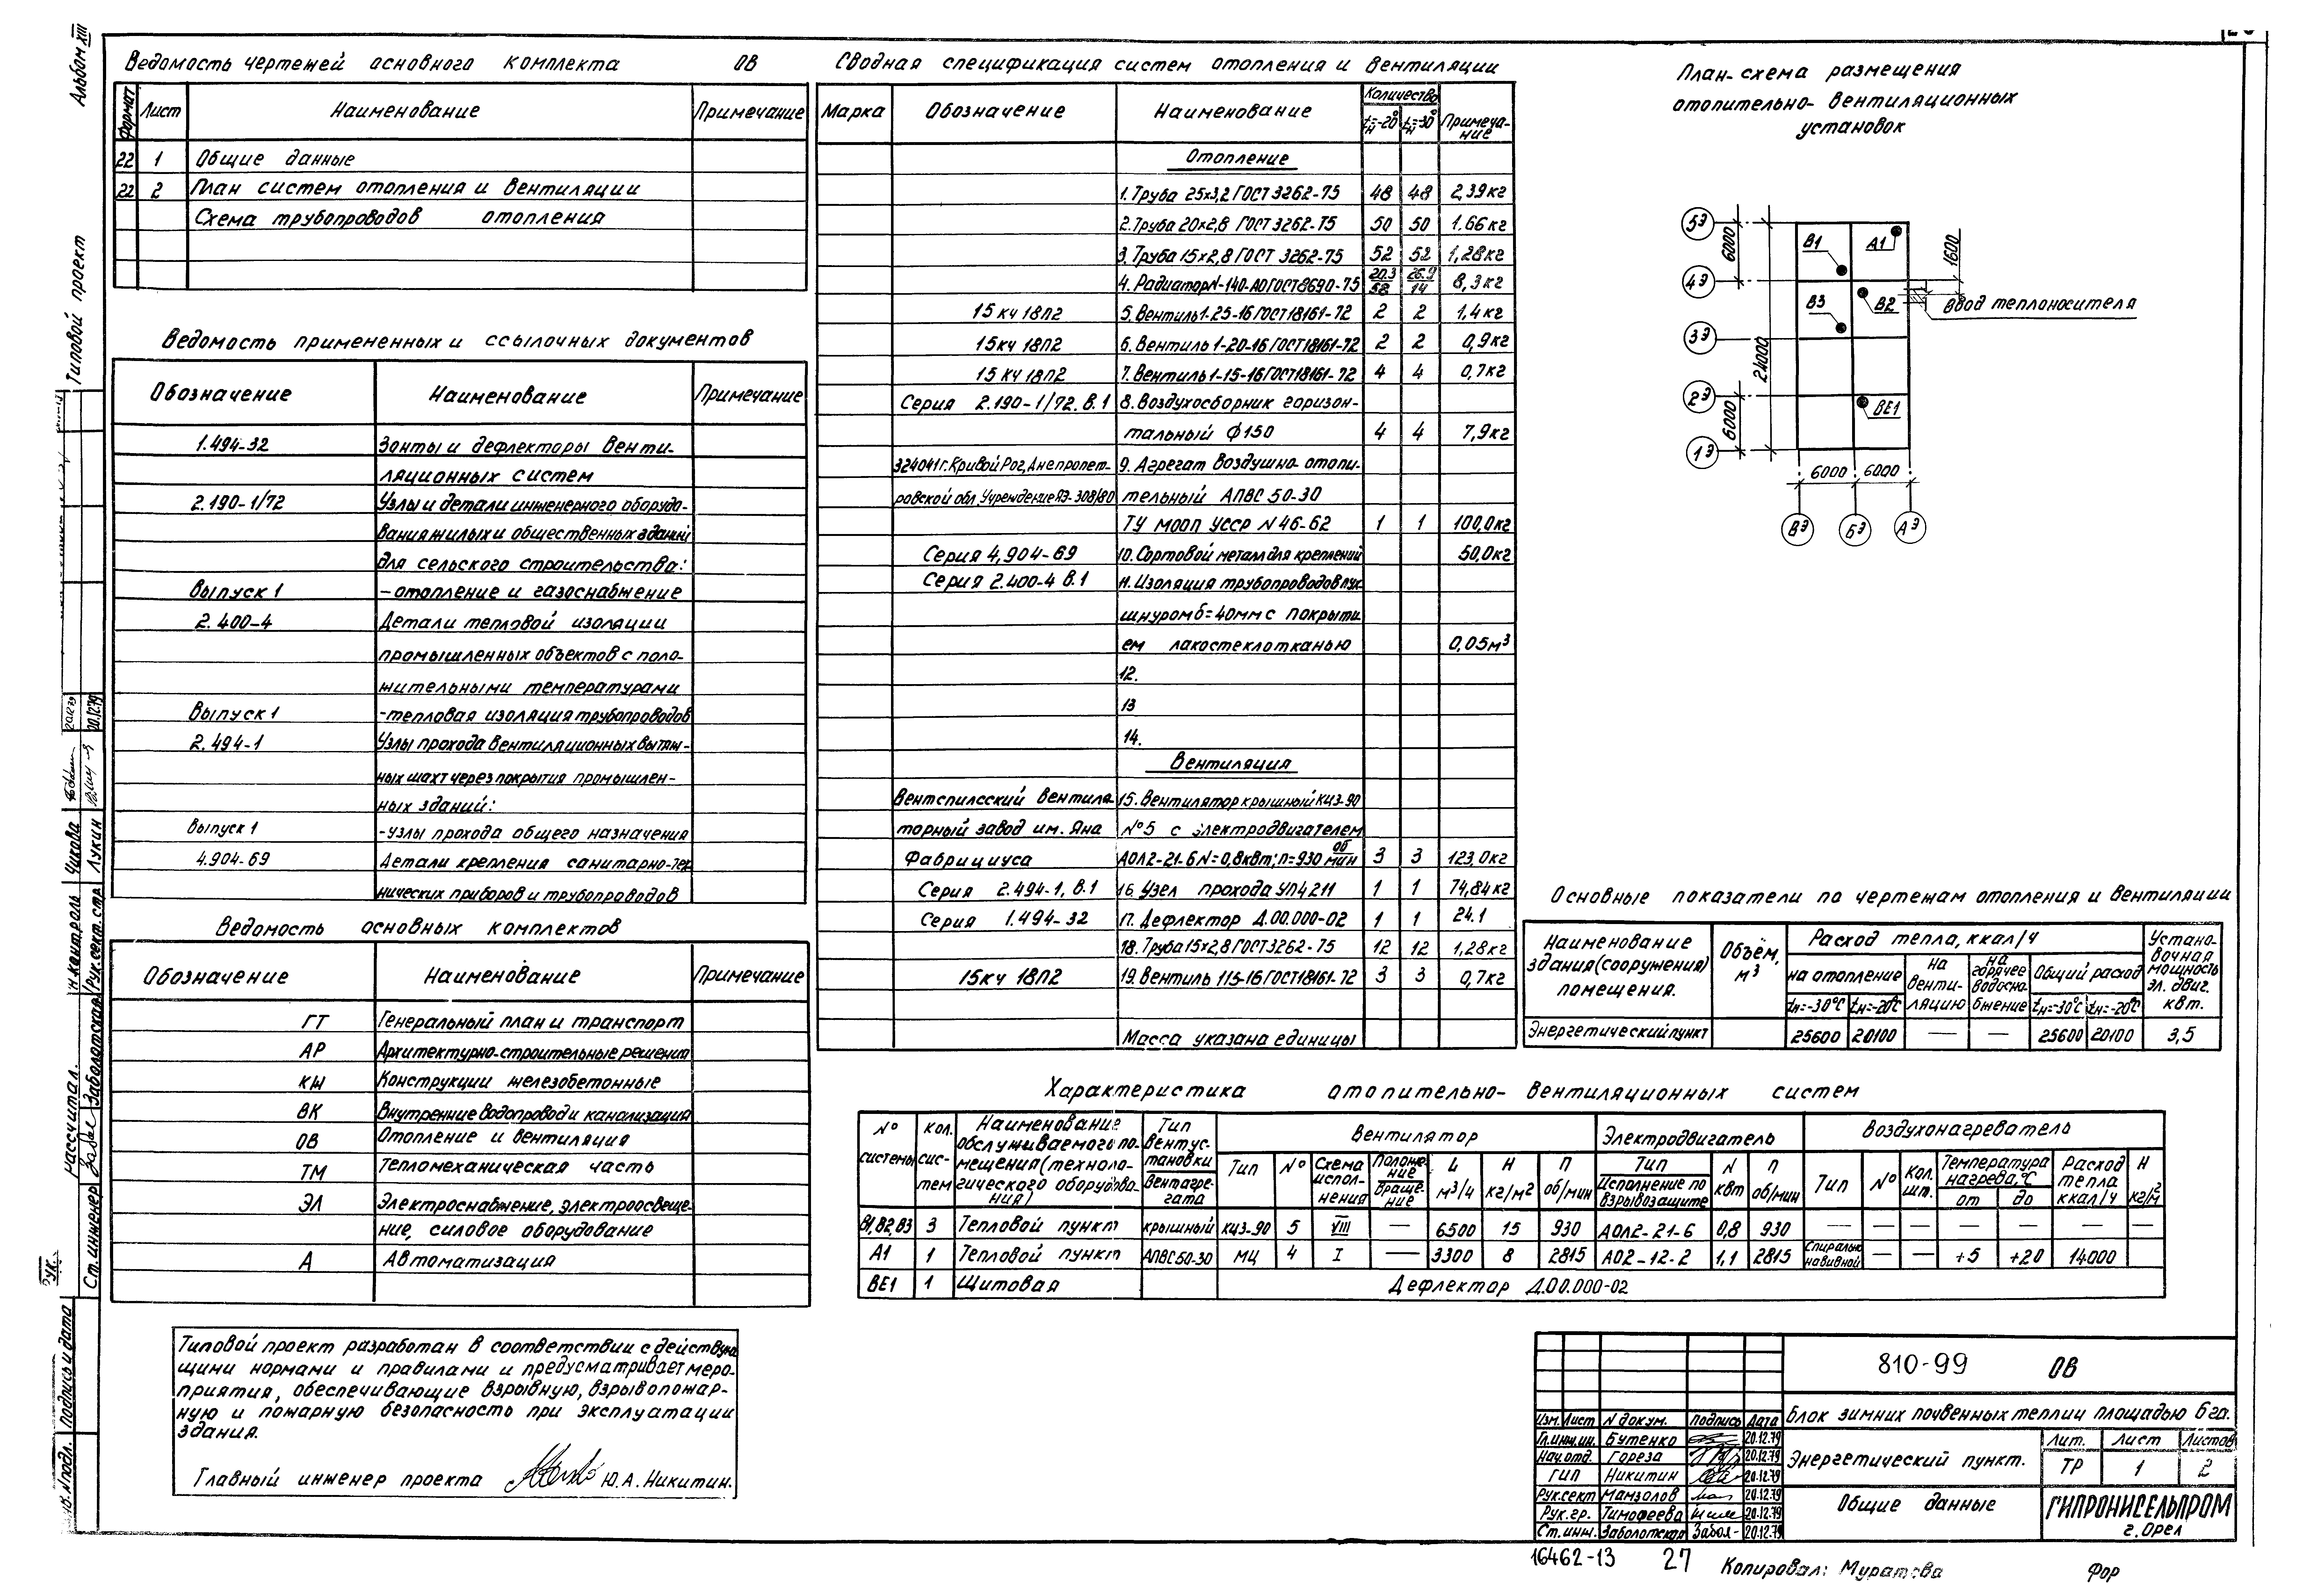 Альбом XIII
Типовой проект
Ведомость чертежей основного комплекта ОВ
Формат Лист Наименование Примечание
22 1 Общие данные
22 2 План систем отопления и вентиляции
Схема трубопроводов отопления
Ведомость примененных и ссылочных документов
Обозначение Наименование Примечание
1.494-32 Зонты и дефлекторы венти-
ляционных систем
2.190-1/72 Узлы и детали инженерного оборудо-
вания жилых и общественных зданий
для сельского строительства:
Выпуск 1 -отопление и газоснабжение
2.400-4 Детали тепловой изоляции
промышленных объектов с поло-
жительными температурами
Выпуск 1 -тепловая изоляция трубопроводов
2.494-1 Узлы прохода вентиляционных вытяж-
ных шахт через покрытия промышлен-
ных зданий:
Выпуск 1 -узлы прохода общего назначения
4.904-69 Детали крепления санитарно-тех
нических приборов и трубопроводов
Ведомость основных комплектов
Обозначение Наименование Примечание
ГТ Генеральный план и транспорт
АР Архитектурно-строительные решения
КЖ Конструкции железобетонные
ВК Внутренние водопровод и канализация
ОВ Отопление и вентиляция
ТМ Тепломеханическая часть
ЭЛ Электроснабжение, электроосвеще-
ние, силовое оборудование
А Автоматизация
Типовой проект разработан в соответствии с действую
щими нормами и правилами и предусматривает меро-
приятия, обеспечивающие взрывную, взрывопожар-
ную и пожарную безопасность при эксплуатации
здания.
Главный инженер проекта Ю.А.Никитин.
Сводная спецификация систем отопления и вентиляции
Марка Обозначение Наименование Количество Примеча-
ние
tн=-20° tн=-30°
Отопление
1. Труба 25х3,2 ГОСТ 3262-75 48 48 2,39кг
2. Труба 20х2,8 ГОСТ 3262-75 50 50 1.66кг
3. Труба 15х2,8 ГОСТ 3262-75 52 52 1,28кг
4. Радиатор Н-140-АО ГОСТ 8690-75 20.3/58 26.9/14 8,3кг
15кч 18п2 5. Вентиль 1-25-16 ГОСТ 18161-72 2 2 1,4кг
15кч 18п2 6. Вентиль 1-20-16 ГОСТ 18161-72 2 2 0,9кг
15кч 18п2 7. Вентиль 1-15-16 ГОСТ 18161-72 4 4 0,7кг
Серия 2.190-1/72. в.1 8. Воздухосборник горизон-
тальный ф150 4 4 7,9кг
324041 г. Кривой Рог, Днепропет- 9. Агрегат воздушно-отопи-
ровской обл. Учреждение ЯЭ-308/80 тельный АПВС 50-30
ТУ МООП УССР N 46-62 1 1 100,0кг
Серия 4,904-69 10. Сортовой металл для креплений 50,0кг
Серия 2.400-4 в.1 11. Изоляция трубопроводов пух.
шнуром б=40мм с покрыти
ем лакостеклотканью 0,05м³
12.
13
14.
Вентиляция
Вентспилсский вентиля- 15. Вентилятор крышный КЦ3-90
торный завод им. Яна №5 с электродвигателем
Фабрициуса АОЛ2-21-6 N=0,8квт; n=930 об/мин 3 3 123,0кг
Серия 2.494-1, в.1 16. Узел прохода УП4 211 1 1 74,84кг
Серия 1.494-32 17. Дефлектор Д.00.000-02 1 1 24.1
18. Труба 15х2,8 ГОСТ 3262-75 12 12 1,28кг
15кч 18п2 19. Вентиль 1 15-16 ГОСТ 18161-72 3 3 0,7кг
Масса указана единицы
План-схема размещения
отопительно-вентиляционных
установок
5Э 4Э 3Э 2Э 1Э
6000 24000 6000
В1 А1 1600
В3 В2 Ввод теплоносителя
ВЕ1
6000 6000
ВЭ БЭ АЭ
Основные показатели по чертежам отопления и вентиляции
Наименование здания (сооружения) помещения. Объём, м³ Расход тепла, ккал/ч Установочная мощность эл. двиг. квт.
на отопление на вентиляцию на горячее водоснабжение Общий расход
tн=-30°С tн=-20°С tн=-30°С tн=-20°С
Энергетический пункт 25600 20100 — — 25600 20100 3,5
Характеристика отопительно-вентиляционных систем
№ системы Кол. систем Наименование обслуживаемого помещения (технологического оборудования) Тип вентустановки вентагрегата Вентилятор Электродвигатель Воздухонагреватель
Тип № Схема исполнения Положение вращение L м³/ч H кг/м² n об/мин Тип Исполнение по взрывозащите N квт n об/мин Тип № Кол. шт. Температура нагрева, °С от до Расход тепла ккал/ч H кг/м²
В1, В2, В3 3 Тепловой пункт крышный КЦ3-90 5 VIII — 6500 15 930 АОЛ2-21-6 0,8 930 — — — — — — —
А1 1 Тепловой пункт АПВС50-30 МЦ 4 I — 3300 8 2815 АО2-12-2 1,1 2815 Спирально навивной — — +5 +20 14000
ВЕ1 1 Щитовая Дефлектор Д.00.000-02
810-99 ОВ
Блок зимних почвенных теплиц площадью 6 га.
Изм. Лист N докум. Подпись Дата
Гл.инж.ин. Бутенко 20.12.79
Нач.отд. Гореза 20.12.79
ГИП Никитин 20.12.79
Рук.сект Манзолов 20.12.79
Рук.гр. Тимофеева 20.12.79
Ст.инж. Заболотская 20.12.79
Энергетический пункт. Лит. Лист Листов
ТР 1 2
Общие данные ГИПРОНИСЕЛЬПРОМ
г.Орел
16462-13 27 Копировал: Муратова Фор
Н.контроль Чихова 20.12.79
Рук.сект.стр. Лукин 20.12.79
Рассчитал.
Ст.инженер Заболотская
Подпись и дата